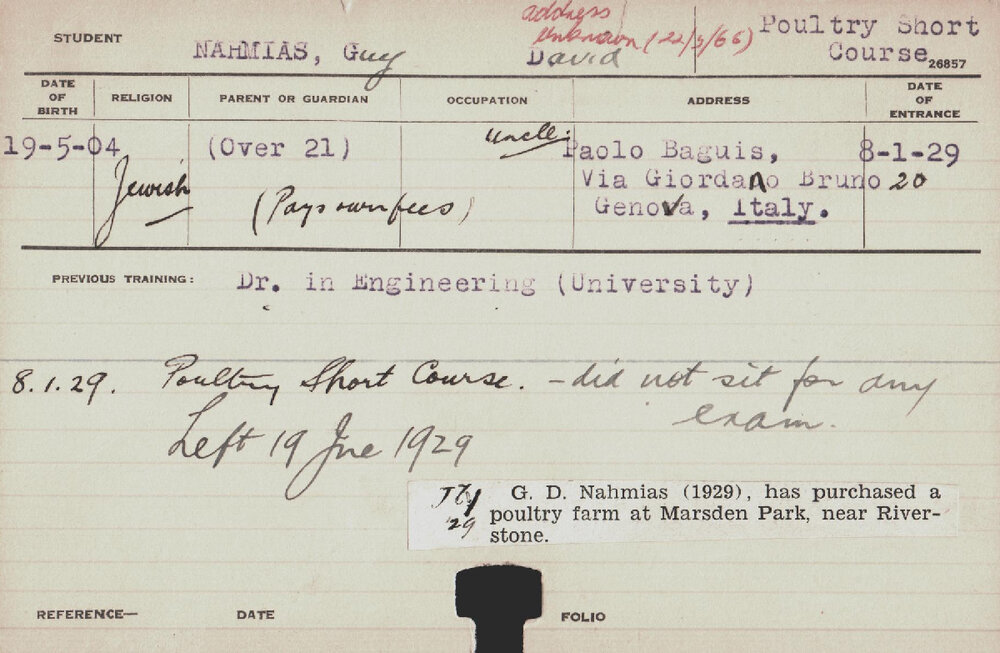 address
unknown (22/3/66)
STUDENT NAHMIAS, Guy David Poultry Short
Course 26857
DATE OF BIRTH RELIGION PARENT OR GUARDIAN OCCUPATION ADDRESS DATE OF ENTRANCE
19-5-04 (Over 21) Uncle: Paolo Baguis, 8-1-29
Jewish (Pays own fees) Via Giordano Bruno 20
Genova, Italy.
PREVIOUS TRAINING: Dr. in Engineering (University)
8.1.29. Poultry Short Course. - did not sit for any
exam.
Left 19 Jne 1929
G. D. Nahmias (1929), has purchased a
'29 poultry farm at Marsden Park, near River-
stone.
REFERENCE— DATE FOLIO